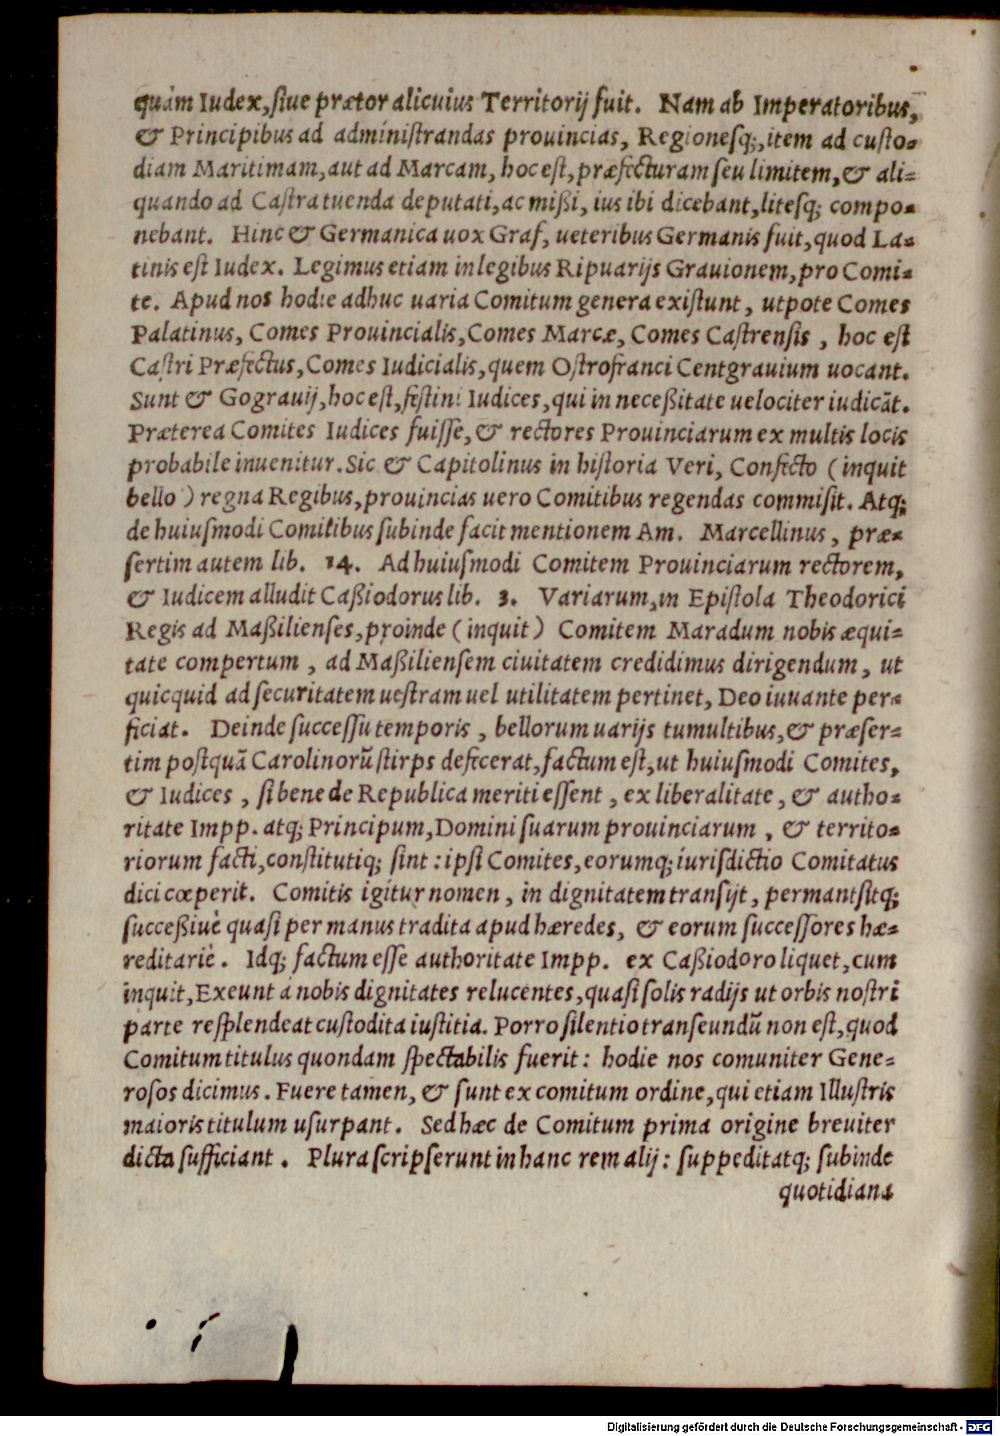 quàm Iudex, ſiue prætor alicuius Territorij fuit. Nam ab Imperatoribus,
& Principibus ad adminiſtrandas prouincias, Regionesq́;, item ad cuſto-
diam Maritimam, aut ad Marcam, hoc eſt, præfecturam ſeu limitem, & ali-
quando ad Caſtra tuenda deputati, ac mißi, ius ibi dicebant, liteſq́; compo-
nebant. Hinc & Germanica uox Graf, ueteribus Germanis fuit, quod La-
tinis eſt Iudex. Legimus etiam in legibus Ripuarijs Grauionem, pro Comi-
te. Apud nos hodie adhuc uaria Comitum genera exiſtunt, utpote Comes
Palatinus, Comes Prouincialis, Comes Marcæ, Comes Caſtrenſis, hoc eſt
Caſtri Præfectus, Comes Iudicialis, quem Oſtrofranci Centgrauium uocant.
Sunt & Gograuij, hoc eſt, feſtini Iudices, qui in neceßitate uelociter iudicãt.
Præterea Comites Iudices fuiſſe, & rectores Prouinciarum ex multis locis
probabile inuenitur. Sic & Capitolinus in hiſtoria Veri, Confecto (inquit
bello) regna Regibus, prouincias uero Comitibus regendas commiſit. Atq;
de huiuſmodi Comitibus ſubinde facit mentionem Am. Marcellinus, præ-
ſertim autem lib. 14. Ad huiuſmodi Comitem Prouinciarum rectorem,
& Iudicem alludit Caßiodorus lib. 3. Variarum, in Epiſtola Theodorici
Regis ad Maßilienſes, proinde (inquit) Comitem Maradum nobis æqui-
tate compertum, ad Maßilienſem ciuitatem credidimus dirigendum, ut
quicquid ad ſecuritatem ueſtram uel utilitatem pertinet, Deo iuuante per-
ficiat. Deinde ſucceſſu temporis, bellorum uarijs tumultibus, & præſer-
tim poſtquã Carolinorũ ſtirps defecerat, factum eſt, ut huiuſmodi Comites,
& Iudices, ſi bene de Republica meriti eſſent, ex liberalitate, & autho-
ritate Impp. atq; Principum, Domini ſuarum prouinciarum, & territo-
riorum facti, conſtitutiq; ſint: ipſi Comites, eorumq; iuriſdictio Comitatus
dici cœperit. Comitis igitur nomen, in dignitatem tranſijt, permanſitq;
ſucceßiuè quaſi per manus tradita apud hæredes, & eorum ſucceſſores hæ-
reditariè. Idq; factum eſſe authoritate Impp. ex Caßiodoro liquet, cum
inquit, Exeunt à nobis dignitates relucentes, quaſi ſolis radijs ut orbis noſtri
parte reſplendeat cuſtodita iuſtitia. Porro ſilentio tranſeundũ non eſt, quod
Comitum titulus quondam ſpectabilis fuerit: hodie nos comuniter Gene-
roſos dicimus. Fuere tamen, & ſunt ex comitum ordine, qui etiam Illuſtris
maioris titulum uſurpant. Sed hæc de Comitum prima origine breuiter
dicta ſufficiant. Plura ſcripſerunt in hanc rem alij: ſuppeditatq; ſubinde
quotidiana
Digitalisierung gefördert durch die Deutsche Forschungsgemeinschaft - DFG